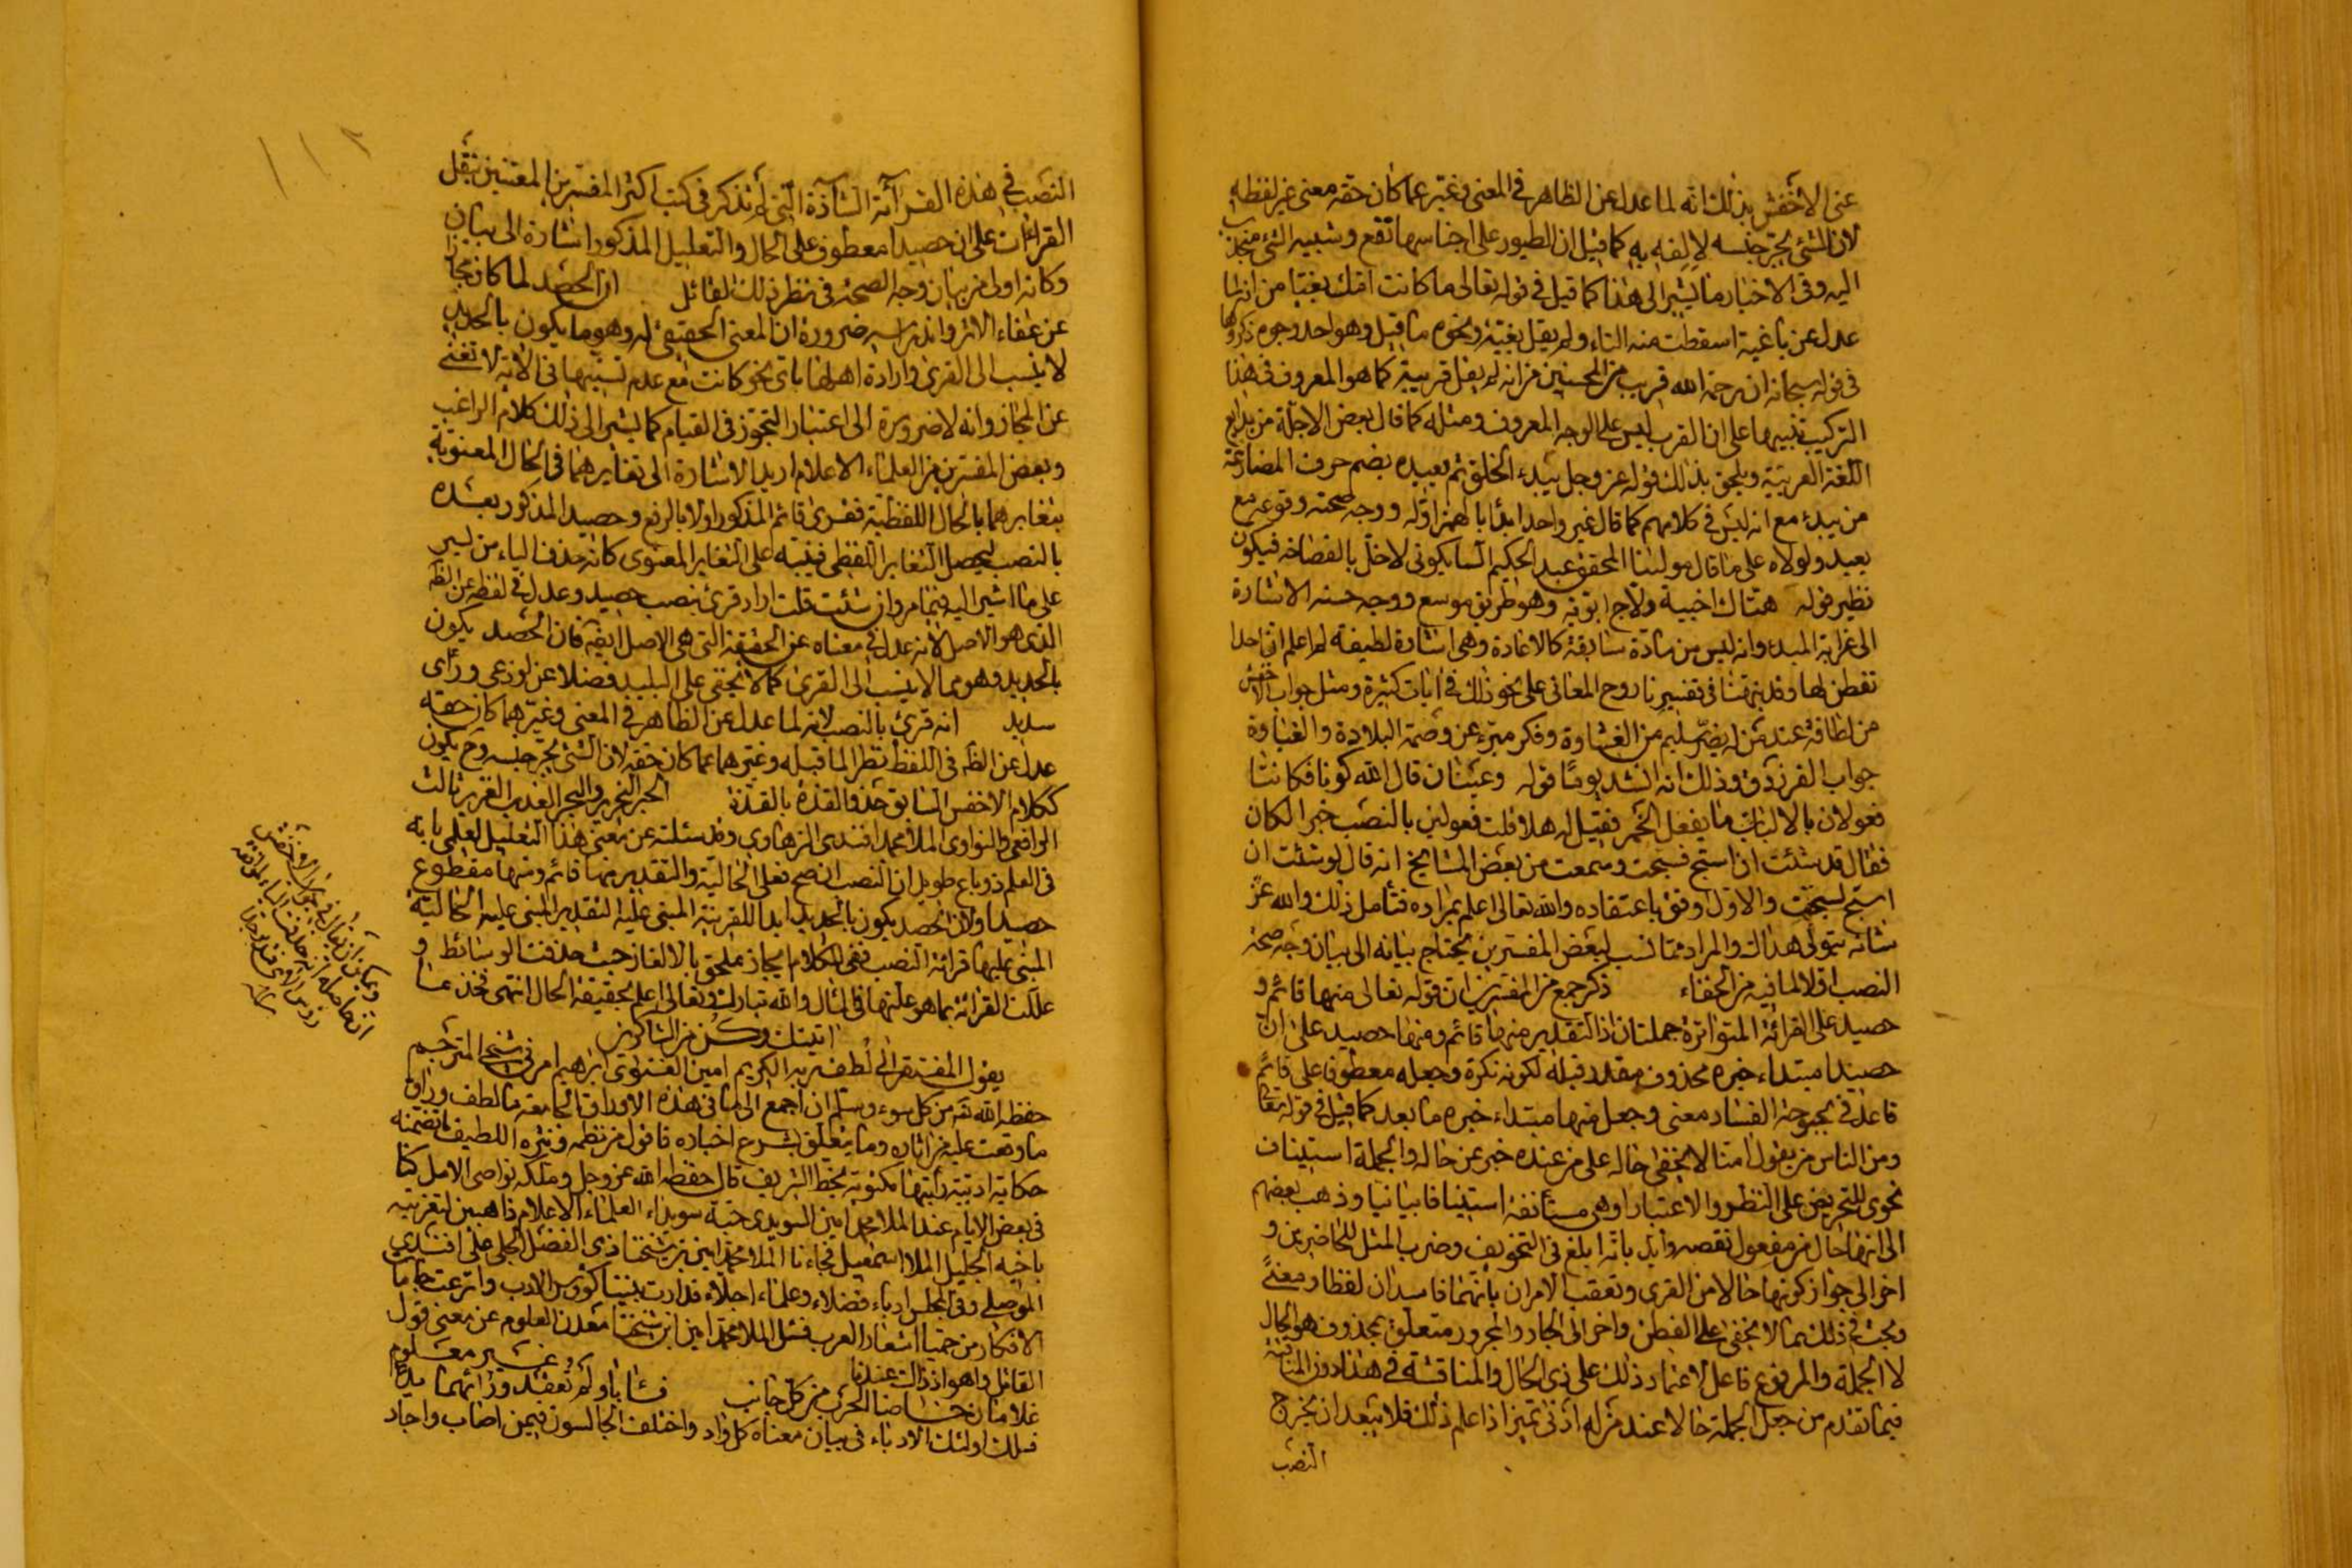 عنى الاخفش بذلك انه لما عدل عن الظاهر في المعنى وغير عما كان حقه معنى غير لفظه
لان الشئ يجر جنسه لالفه به كما قيل ان الطيور على اجناسها تقع وشبيه الشئ منجذب
اليه وفى الاخبار ما يشير الى هذا كما قيل في قوله تعالى ما كانت امك بغيا من انها لما
عدل عن باغية اسقطت منه التاء ولم يقل بغية ونحوه ما قيل وهو احد وجوه ذكروها
فى قوله سبحانه ان رحمة الله قريب من المحسنين من انه لم يقل قريبة كما هو المعروف فى هذا
التركيب تنبيها على ان القرب ليس على الوجه المعروف ومثله كما قال بعض الاجلة من بدايع
اللغة العربية ويلحق بذلك قوله عز وجل يبدء الخلق ثم يعيده بضم حرف المضارعة
من يبدء مع انه ليس في كلامهم كما قال غير واحد ابدأ بالهمز اوله ووجه صحته وقوعه مع
يعيد ولولاه على ما قال مولينا المحقق عبد الحكيم السايكوتى لاخل بالفصاحة فيكون
نظير قوله هتاك اخبية ولاج ابوبة وهو طريق موسع ووجه حسنه الاشارة
الى غرابة المبدء وانه ليس من مادة سابقة كالاعادة وهى اشارة لطيفة لم اعلم ان احدا
تفطن لها وقد نبهنا فى تفسيرنا روح المعانى على نحو ذلك في ايات كثيرة ومثل جواب الاخفش
من لطافة عند من له بصر سليم من الغشاوة وفكر مبرء عن وصمة البلادة والغباوة
جواب الفرزدق وذلك انه انشد يوما قوله وعينان قال الله كونا فكانتا
فعولان بالالباب ما يفعل الخمر فقيل له هلا قلت فعولين بالنصب خبر الكان
فقال قد شئت ان اسبح فسبحت وسمعت من بعض المشايخ انه قال لو شئت ان
اسبح لسبحت والاول اوفق باعتقاده والله تعالى اعلم بمراده فتأمل ذلك والله عز
شانه يتولى هداك والمراد مما نسب لبعض المفسرين يحتاج بيانه الى بيان وجه صحة
النصب اولا لما فيه من الخفاء ذكر جمع من المفسرين ان قوله تعالى منها قائم و
حصيد على القرائة المتواترة جملتان اذ التقدير منها قائم ومنها حصيد على ان
حصيدا مبتداء خبره محذوف مقدر قبله لكونه نكرة وجعله معطوفا على قائم
قاعد في بحبوحة الفساد معنى وجعل منها مبتداء خبره ما بعد كما قيل في قوله تعالى
ومن الناس من يقول امنا لا يخفى حاله على من عنده خبر عن حاله والجملة استيناف
نحوى للتحريض على النظر والاعتبار او هى مستأنفة استينافا بيانيا وذهب بعضهم
الى انها حال من مفعول نقصه وايد بانه ابلغ فى التخويف وضرب المثل للحاضرين و
اخر الى جواز كونها حالا من القرى وتعقب الامران بانهما فاسدان لفظا ومعنى
وبحث في ذلك بما لا يخفى على الفطن واخر الى الجار والمجرور متعلق بمحذوف هو الحال
لا الجملة والمرفوع فاعل لاعتماد ذلك على ذى الحال والمناقشة في هذا دون المناقشة
فيما تقدم من جعل الجملة حالا عند من له ادنى تميز اذا علم ذلك فلا يبعد ان يخرج
النصب
١١٢
النصب في هذه القرآئة الشآذة التي لم تذكر فى كتب اكثر المفسرين المعتنين بنقل
القراات على ان حصيدا معطوف على الحال والتعليل المذكور اشارة الى بيان
وكانه اولى من بيان وجه الصحة فى نظر ذلك القائل ان الحصد لما كان مجازا
عن عفاء الاثر واندراسه ضرورة ان المعنى الحقيقى له وهو ما يكون بالحديد
لا ينسب الى القرى وارادة اهلها باى نحو كانت مع عدم تسببها فى الاية لا تغنى
عن المجاز وانه لا ضرورة الى اعتبار التجوز فى القيام كما يشير الى ذلك كلام الراغب
وبعض المفسرين من العلماء الاعلام اريد الاشارة الى تغايرهما فى الحال المعنوية
بتغايرهما بالحال اللفظية فقرئ قائم المذكور اولا بالرفع وحصيد المذكور بعده
بالنصب ليحصل التغاير اللفظى فينبه على التغاير المعنوى كانه حذف الياء من يسر
على ما اشير اليه فيما مر وان شئت قلت اراد قرئ بنصب حصيد وعدل في لفظه عن الظه
الذى هو الاصل لانه عدل في معناه عن الحقيقة التى هى الاصل ايضه فان الحصد يكون
بالحديد وهو مما لا ينسب الى القرى كما لا يخفى على البليد فضلا عن لوزعى وراى
سديد انه قرئ بالنصب لانه لما عدل عن الظاهر في المعنى وغير عما كان حقه
عدل عن الظه فى اللفظ نظر الما قبله وغيرهما عما كان حقه لان الشئ يجر جنسه وح يكون
ككلام الاخفش السابق حذو القذة بالقذة الحبر النحرير والبحر العذب الغزير ثالث
الرافعى والنواوى الملا محمد افندى الزهاوى وقد سئلته عن معنى هذا التعليل لعلمى بانه
فى العلم ذو باع طويل ان النصب ان صح فعلى الحالية والتقدير منها قائم ومنها مقطوع
حصيدا ولان الحصد يكون بالحديد ابدا للقرينة المبنى عليه التقدير المبنى عليه الحالية
المبنى عليها قرائة النصب ففى الكلام ايجاز ملحق بالالغاز حيث حذفت الوسائط و
عللت القرائة بما هو علتها في المثال والله تبارك وتعالى اعلم بحقيقة الحال انتهى فخذ ما
اتيتك وكن من الشاكرين
يقول المفتقر الى لطف ربه الكريم امين الفتوى ابراهيم امرنى شيخى المترجم
حفظه الله تعه من كل سوء وسلم ان اجمع الى ما فى هذه الاوراق الجامعة ما لطف وراق
ما وقعت عليه من اثاره وما يتعلق بشرح اخباره فاقول من نظمه ونثره اللطيف ما تضمنه
حكاية ادبية رأيتها مكتوبة بخط الشريف قال حفظه الله عز وجل وملكه نواصى الامل كنا
فى بعض الايام عند الملا محمد امين السويدى حبة سويداء العلماء الاعلام ذاهبين لتعزيته
باخيه الجليل الملا اسمعيل فجاءنا الملا محمد امين بن شيخنا ذى الفضل الجلى على افندى
الموصلى وفى المجلس ادباء فضلاء وعلماء اجلاء فدارت بيننا كؤوس الادب واترعت جامات
الافكار من حميا اشعار العرب فسئل الملا محمد امين ابن شيخنا معدن العلوم عن معنى قول
القائل وهو اذ ذاك عندنا غير معلوم
غلامان خاضا الحرب من كل جانب فئابا ولم تعقد ورائهما يد
فسلك اولئك الادباء فى بيان معناه كل واد واختلف الجالسون فيمن اصاب واجاد